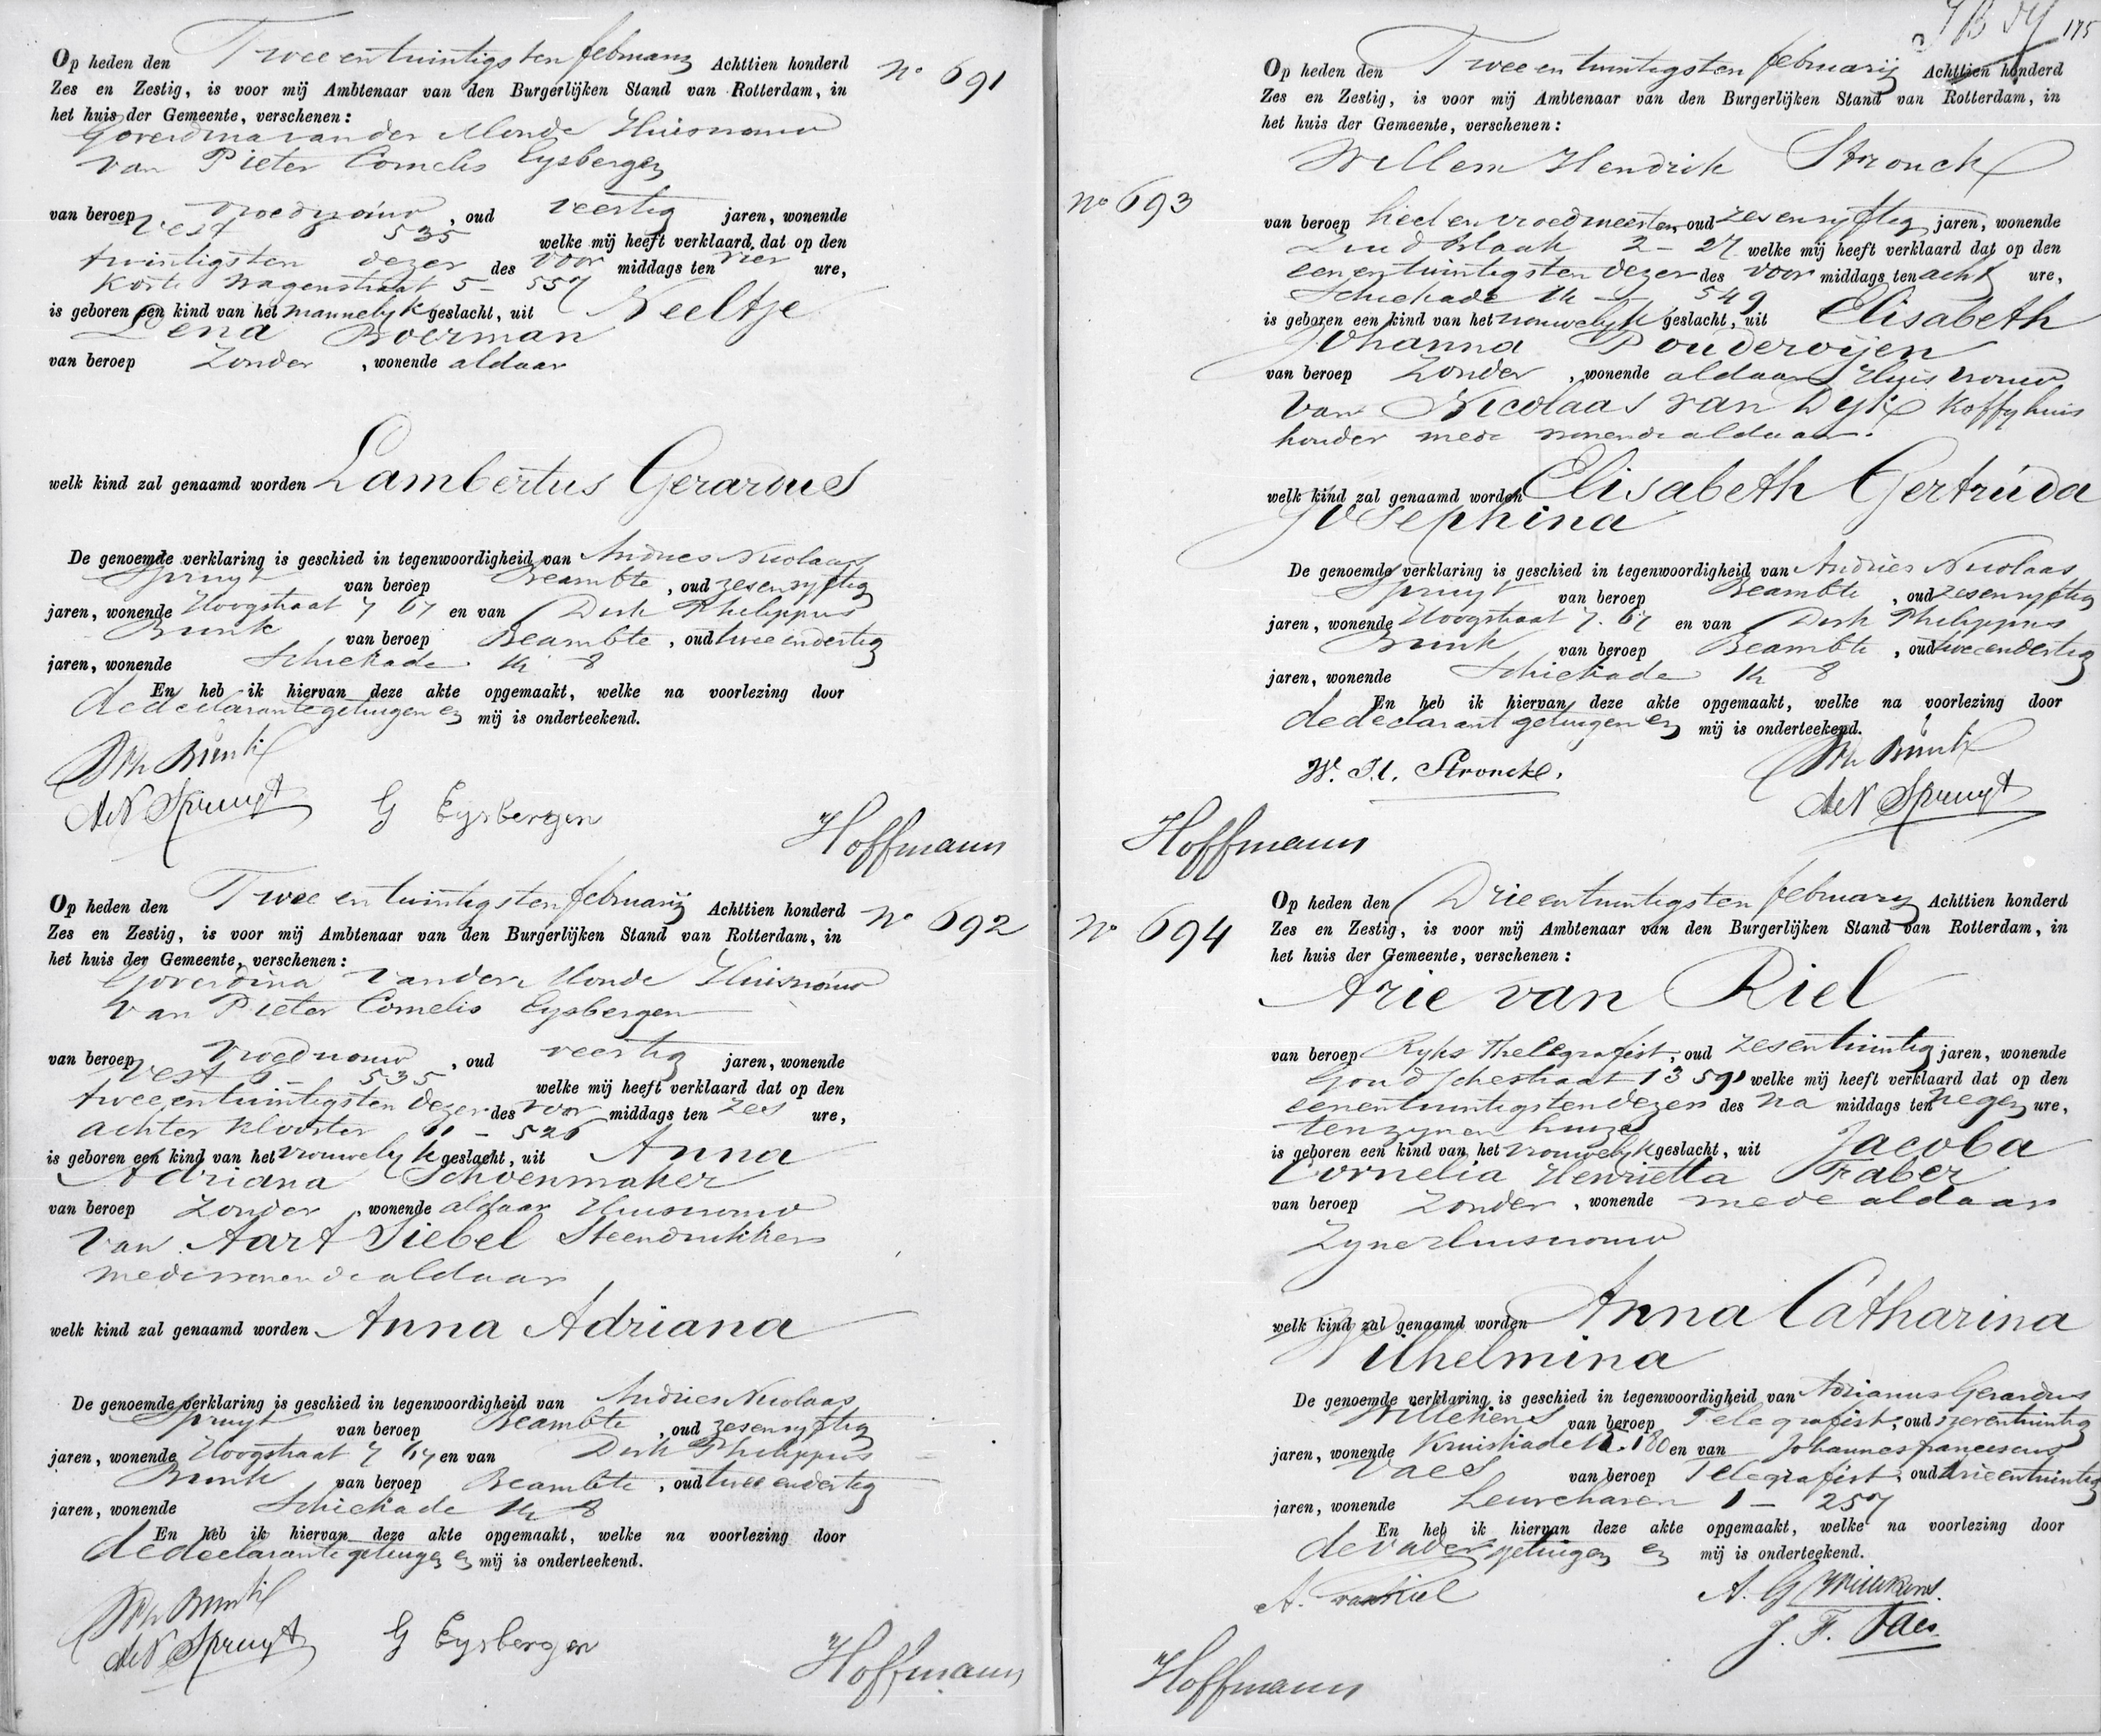 Op heden den Twee en twintigsten februarij Achttien honderd
Zes en Zestig, is voor mij Ambtenaar van den Burgerlijken Stand van Rotterdam, in
het huis der Gemeente, verschenen:
Goverdina van der Monde Huisvrouw
van Pieter Cornelis Eysbergen
van beroep vroedvrouw, oud veertig jaren, wonende
Vest 6 535 welke mij heeft verklaard dat op den
twintigsten dezer des voor middags ten vier ure,
Korte Wagenstraat 5 - 557
is geboren een kind van het mannelyk geslacht, uit Neeltje
Lena Boerman
van beroep Zonder, wonende aldaar
welk kind zal genaamd worden Lambertus Gerardus
De genoemde verklaring is geschied in tegenwoordigheid van Andries Nicolaas
Spruyt van beroep Beambte, oud zesenvyftig
jaren, wonende Hoogstraat 7 67 en van Dirk Philippus
Bunk van beroep Beambte, oud twee endertig
jaren, wonende Schiekade 14 8
En heb ik hiervan deze akte opgemaakt, welke na voorlezing door
de declarante getuigen en mij is onderteekend.
DPh Bunk
AN Spruyt G Eysbergen
Hoffmann
No 691
Op heden den Twee en twintigsten februarij Achttien honderd
Zes en Zestig, is voor mij Ambtenaar van den Burgerlijken Stand van Rotterdam, in
het huis der Gemeente, verschenen:
Goverdina van der Monde Huisvrouw
van Pieter Cornelis Eysbergen
van beroep Vroedvrouw, oud veertig jaren, wonende
Vest 6 - 535 welke mij heeft verklaard dat op den
twee en twintigsten dezer des voor middags ten zes ure,
achter Klooster 11 - 526
is geboren een kind van het vrouwelyk geslacht, uit Anna
Adriana Schoenmaker
van beroep Zonder, wonende aldaar Huisvrouw
van Aart Siebel Steendrukker
mede wonende aldaar
welk kind zal genaamd worden Anna Adriana
De genoemde verklaring is geschied in tegenwoordigheid van Andries Nicolaas
Spruyt van beroep Beambte, oud zesenvyftig
jaren, wonende Hoogstraat 7 67 en van Dirk Philippus
Bunk van beroep Beambte, oud twee endertig
jaren, wonende Schiekade 14 8
En heb ik hiervan deze akte opgemaakt, welke na voorlezing door
de declarante getuigen en mij is onderteekend.
DPh Bunk
AN Spruyt G Eysbergen
Hoffmann
No 692
175
Op heden den Twee en twintigsten februarij Achttien honderd
Zes en Zestig, is voor mij Ambtenaar van den Burgerlijken Stand van Rotterdam, in
het huis der Gemeente, verschenen:
Willem Hendrik Stronck
No 693
van beroep heel en vroedmeester, oud zesenvyftig jaren, wonende
Zuidblaak 2 - 27 welke mij heeft verklaard dat op den
eenentwintigsten dezer des voor middags ten acht ure,
Schiekade 14 - 549
is geboren een kind van het vrouwelyk geslacht, uit Elisabeth
Johanna Pouderoijen
van beroep Zonder, wonende aldaar Huisvrouw
van Nicolaas van Dyk Koffyhuis
houder mede wonende aldaar.
welk kind zal genaamd worden Elisabeth Gertruda
Josephina
De genoemde verklaring is geschied in tegenwoordigheid van Andries Nicolaas
Spruyt van beroep Beambte, oud zesenvyftig
jaren, wonende Hoogstraat 7. 67 en van Dirk Philippus
Bunk van beroep Beambte, oud tweeendertig
jaren, wonende Schiekade 14 8
En heb ik hiervan deze akte opgemaakt, welke na voorlezing door
de declarant getuigen en mij is onderteekend.
W. H. Stronck. DPh Bunk
AN Spruyt
Hoffmann
Op heden den Drie entwintigsten february Achttien honderd
No 694
Zes en Zestig, is voor mij Ambtenaar van den Burgerlijken Stand van Rotterdam, in
het huis der Gemeente, verschenen:
Arie van Riel
van beroep Ryks Thelegrafist, oud zesentwintig jaren, wonende
Goudschestraat 13 591 welke mij heeft verklaard dat op den
eenentwintigsten dezer des na middags ten negen ure,
ten zynen huize
is geboren een kind van het vrouwelyk geslacht, uit Jacoba
Cornelia Henrietta Faber
van beroep Zonder, wonende mede aldaar
Zyne Huisvrouw
welk kind zal genaamd worden Anna Catharina
Wilhelmina
De genoemde verklaring is geschied in tegenwoordigheid van Adrianus Gerardus
Willekens van beroep Telegrafist, oud zevenentwintig
jaren, wonende Kruiskade 12. 180 en van Johannes franciscus
Vaes van beroep Telegrafist, oud drieentwintig
jaren, wonende Leuvehaven 1 - 257
En heb ik hiervan deze akte opgemaakt, welke na voorlezing door
de vader getuigen en mij is onderteekend.
A. van Riel A. G Willekens.
J. F. Vaes.
Hoffmann